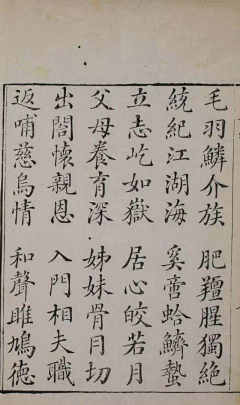 毛羽鱗介族　肥羶腥獨絕
統紀江湖海　奚啻蛤鱭蟄
立志屹如嶽　居心皎若月
父母養育深　姊妹骨月切
出閤懷親恩　入門相夫職
返哺慈烏情　和聲雎鳩德